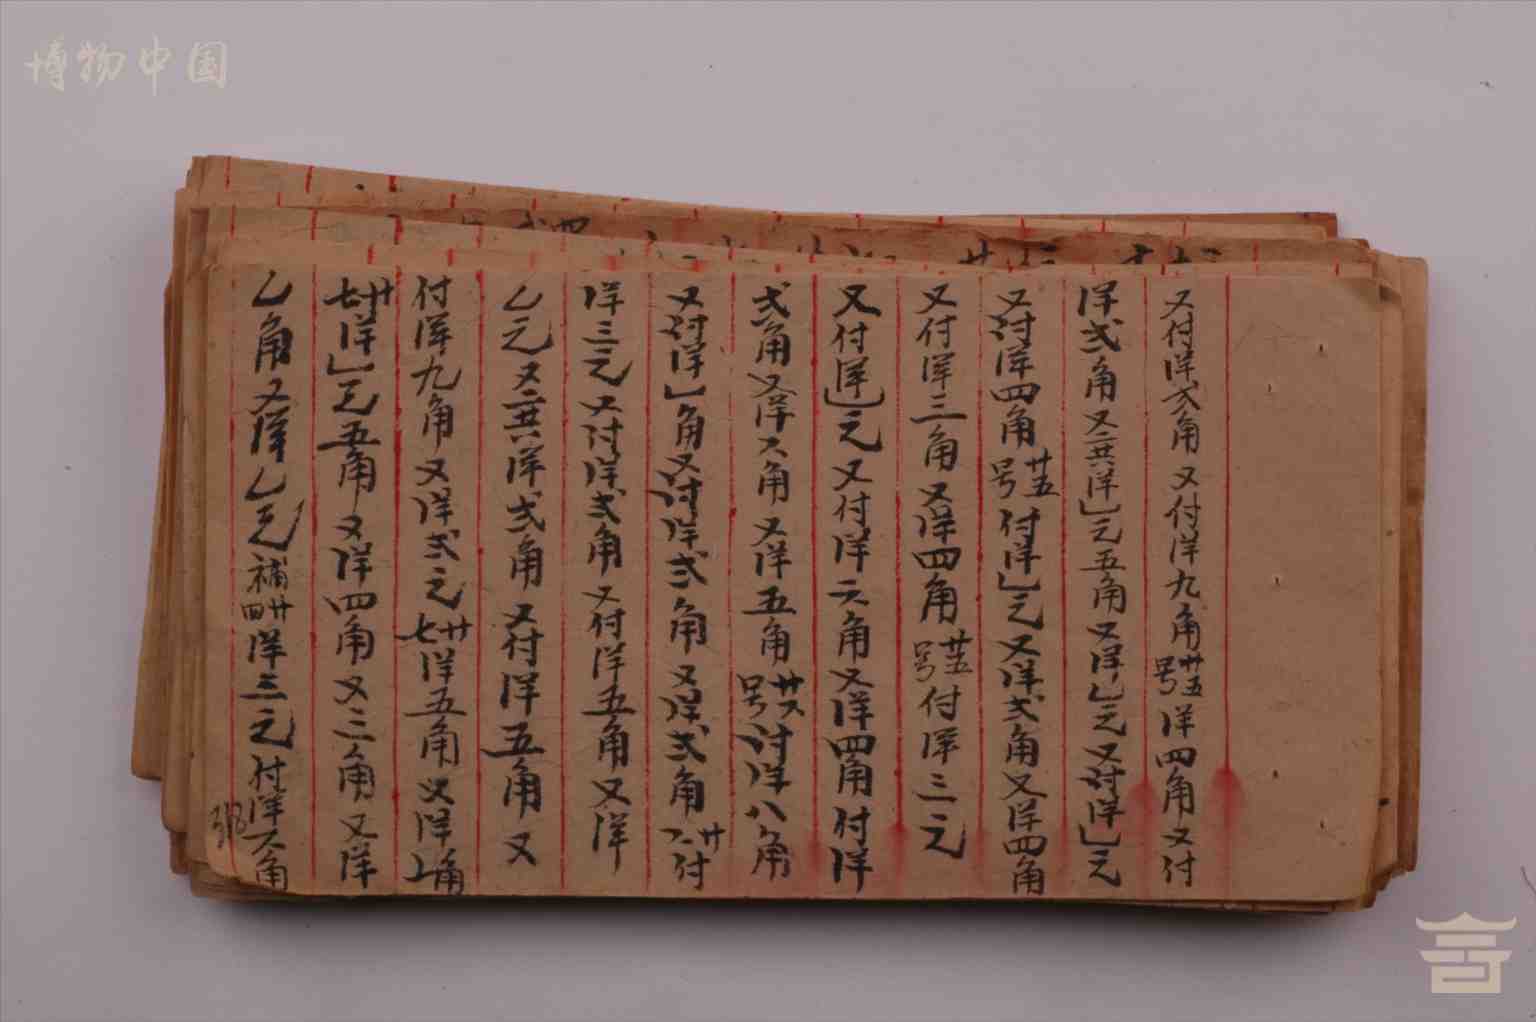 博物中国
又付洋弍角又付洋九角廿五号洋四角又付
洋弍角又廿六洋乚元五角又洋乚元又付洋乚元
又付洋四角廿五号付洋乚元又洋弍角又洋四角
又付洋三角又洋四角廿五号付洋三元
又付洋乚元又付洋六角又洋四角付洋
弍角又洋六角又洋五角廿六号付洋八角
又付洋乚角又付洋弍角又洋弍角廿六付
洋三元又付洋弍角又付洋五角又洋
乚元又廿六洋弍角又付洋五角又
付洋九角又洋弍元廿七洋五角又洋角
廿七洋乚元五角又洋四角又三角又洋
乚角又洋乚元補廿四洋三元付洋六角
318